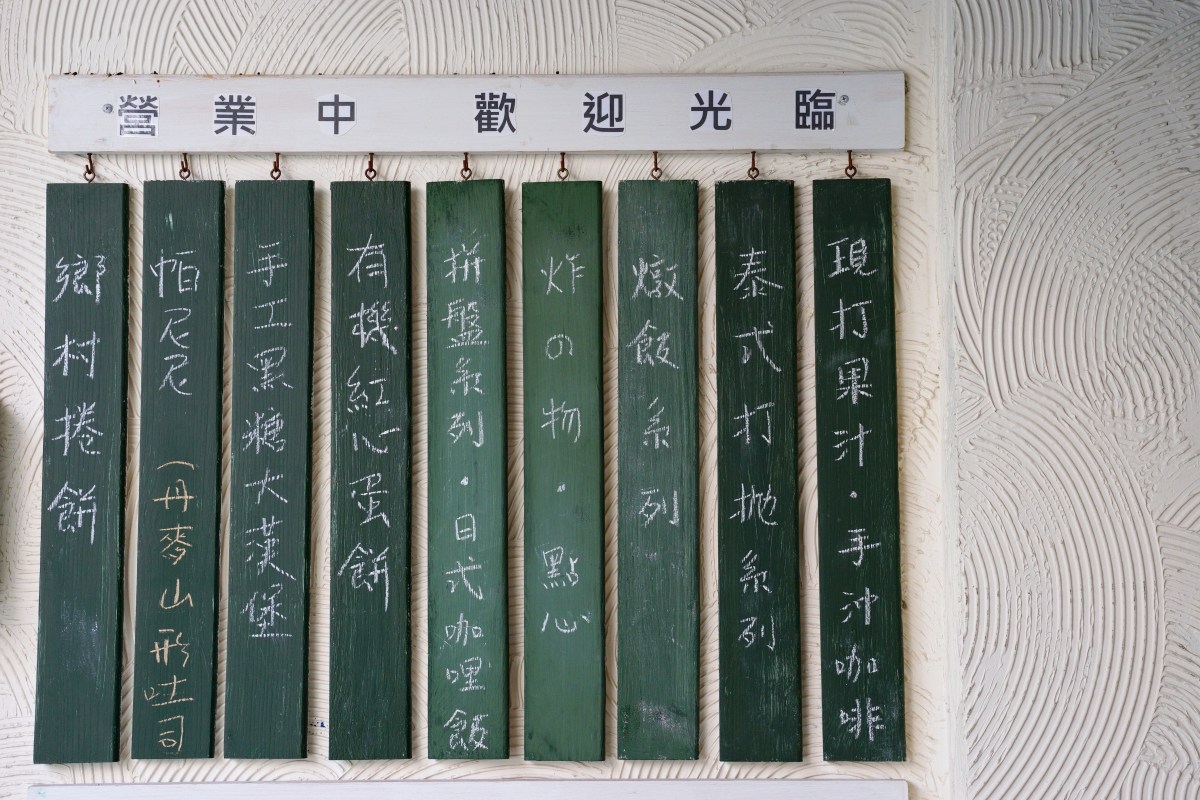 營業中 歡迎光臨
鄉村捲餅
帕尼尼（丹麥山形吐司
手工黑糖大漢堡
有機紅心蛋餅
拼盤系列・日式咖哩飯
炸の物・點心
燉飯系列
泰式打拋系列
現打果汁・手沖咖啡